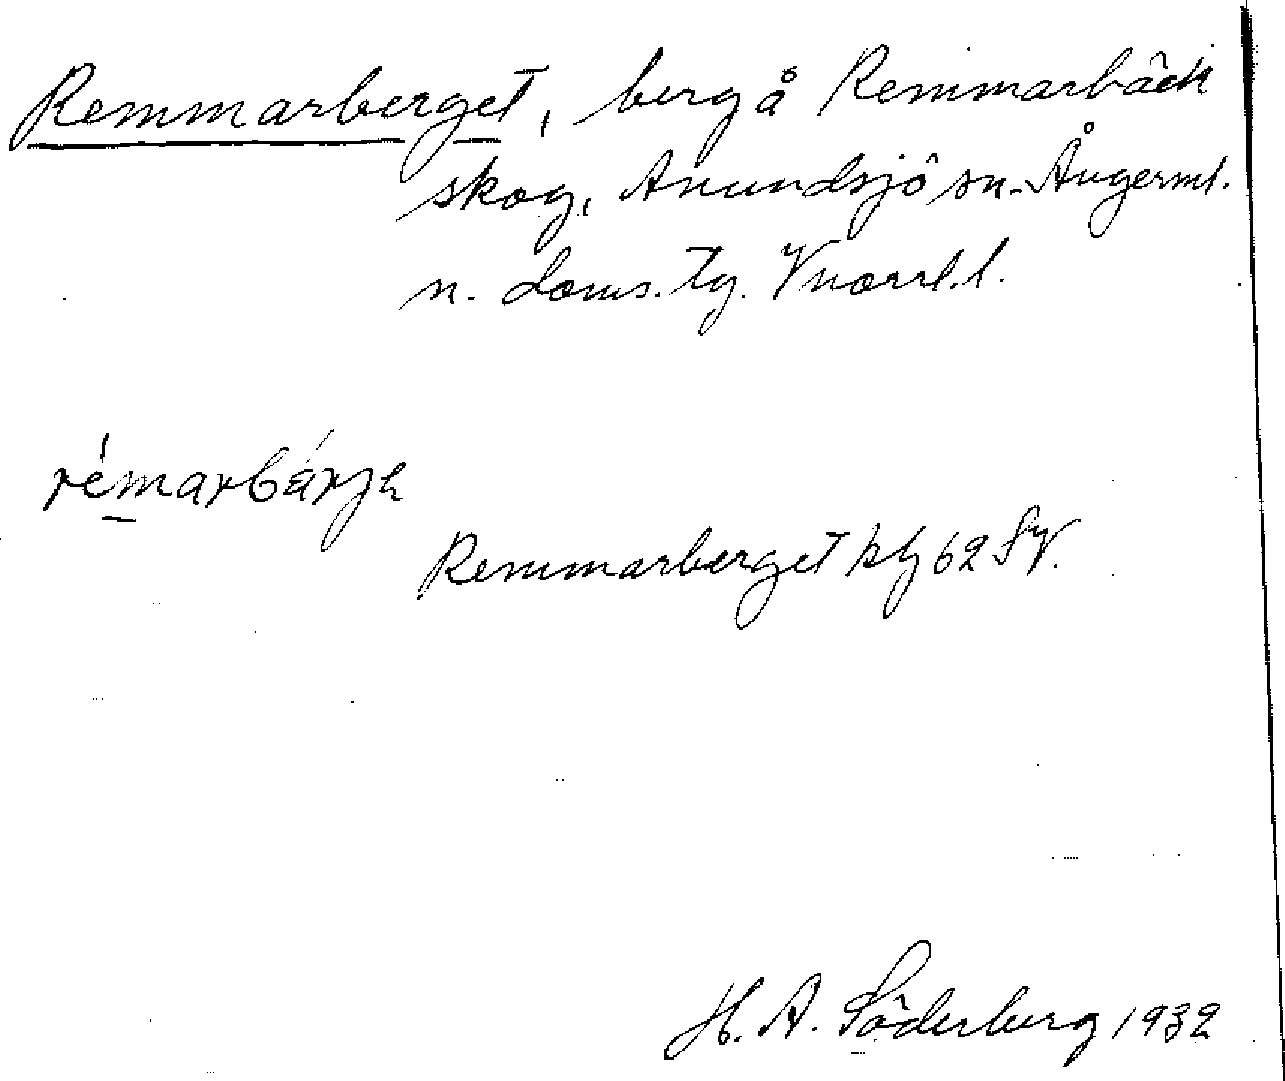 Remmarberget, berg å Remmarbäck
skog, Anundsjö sn. Ångerml.
n. doms. tg. Vnorrl. l.
rémarbárjə
Remmarberget kbl 62 SV.
H. A. Söderberg 1932